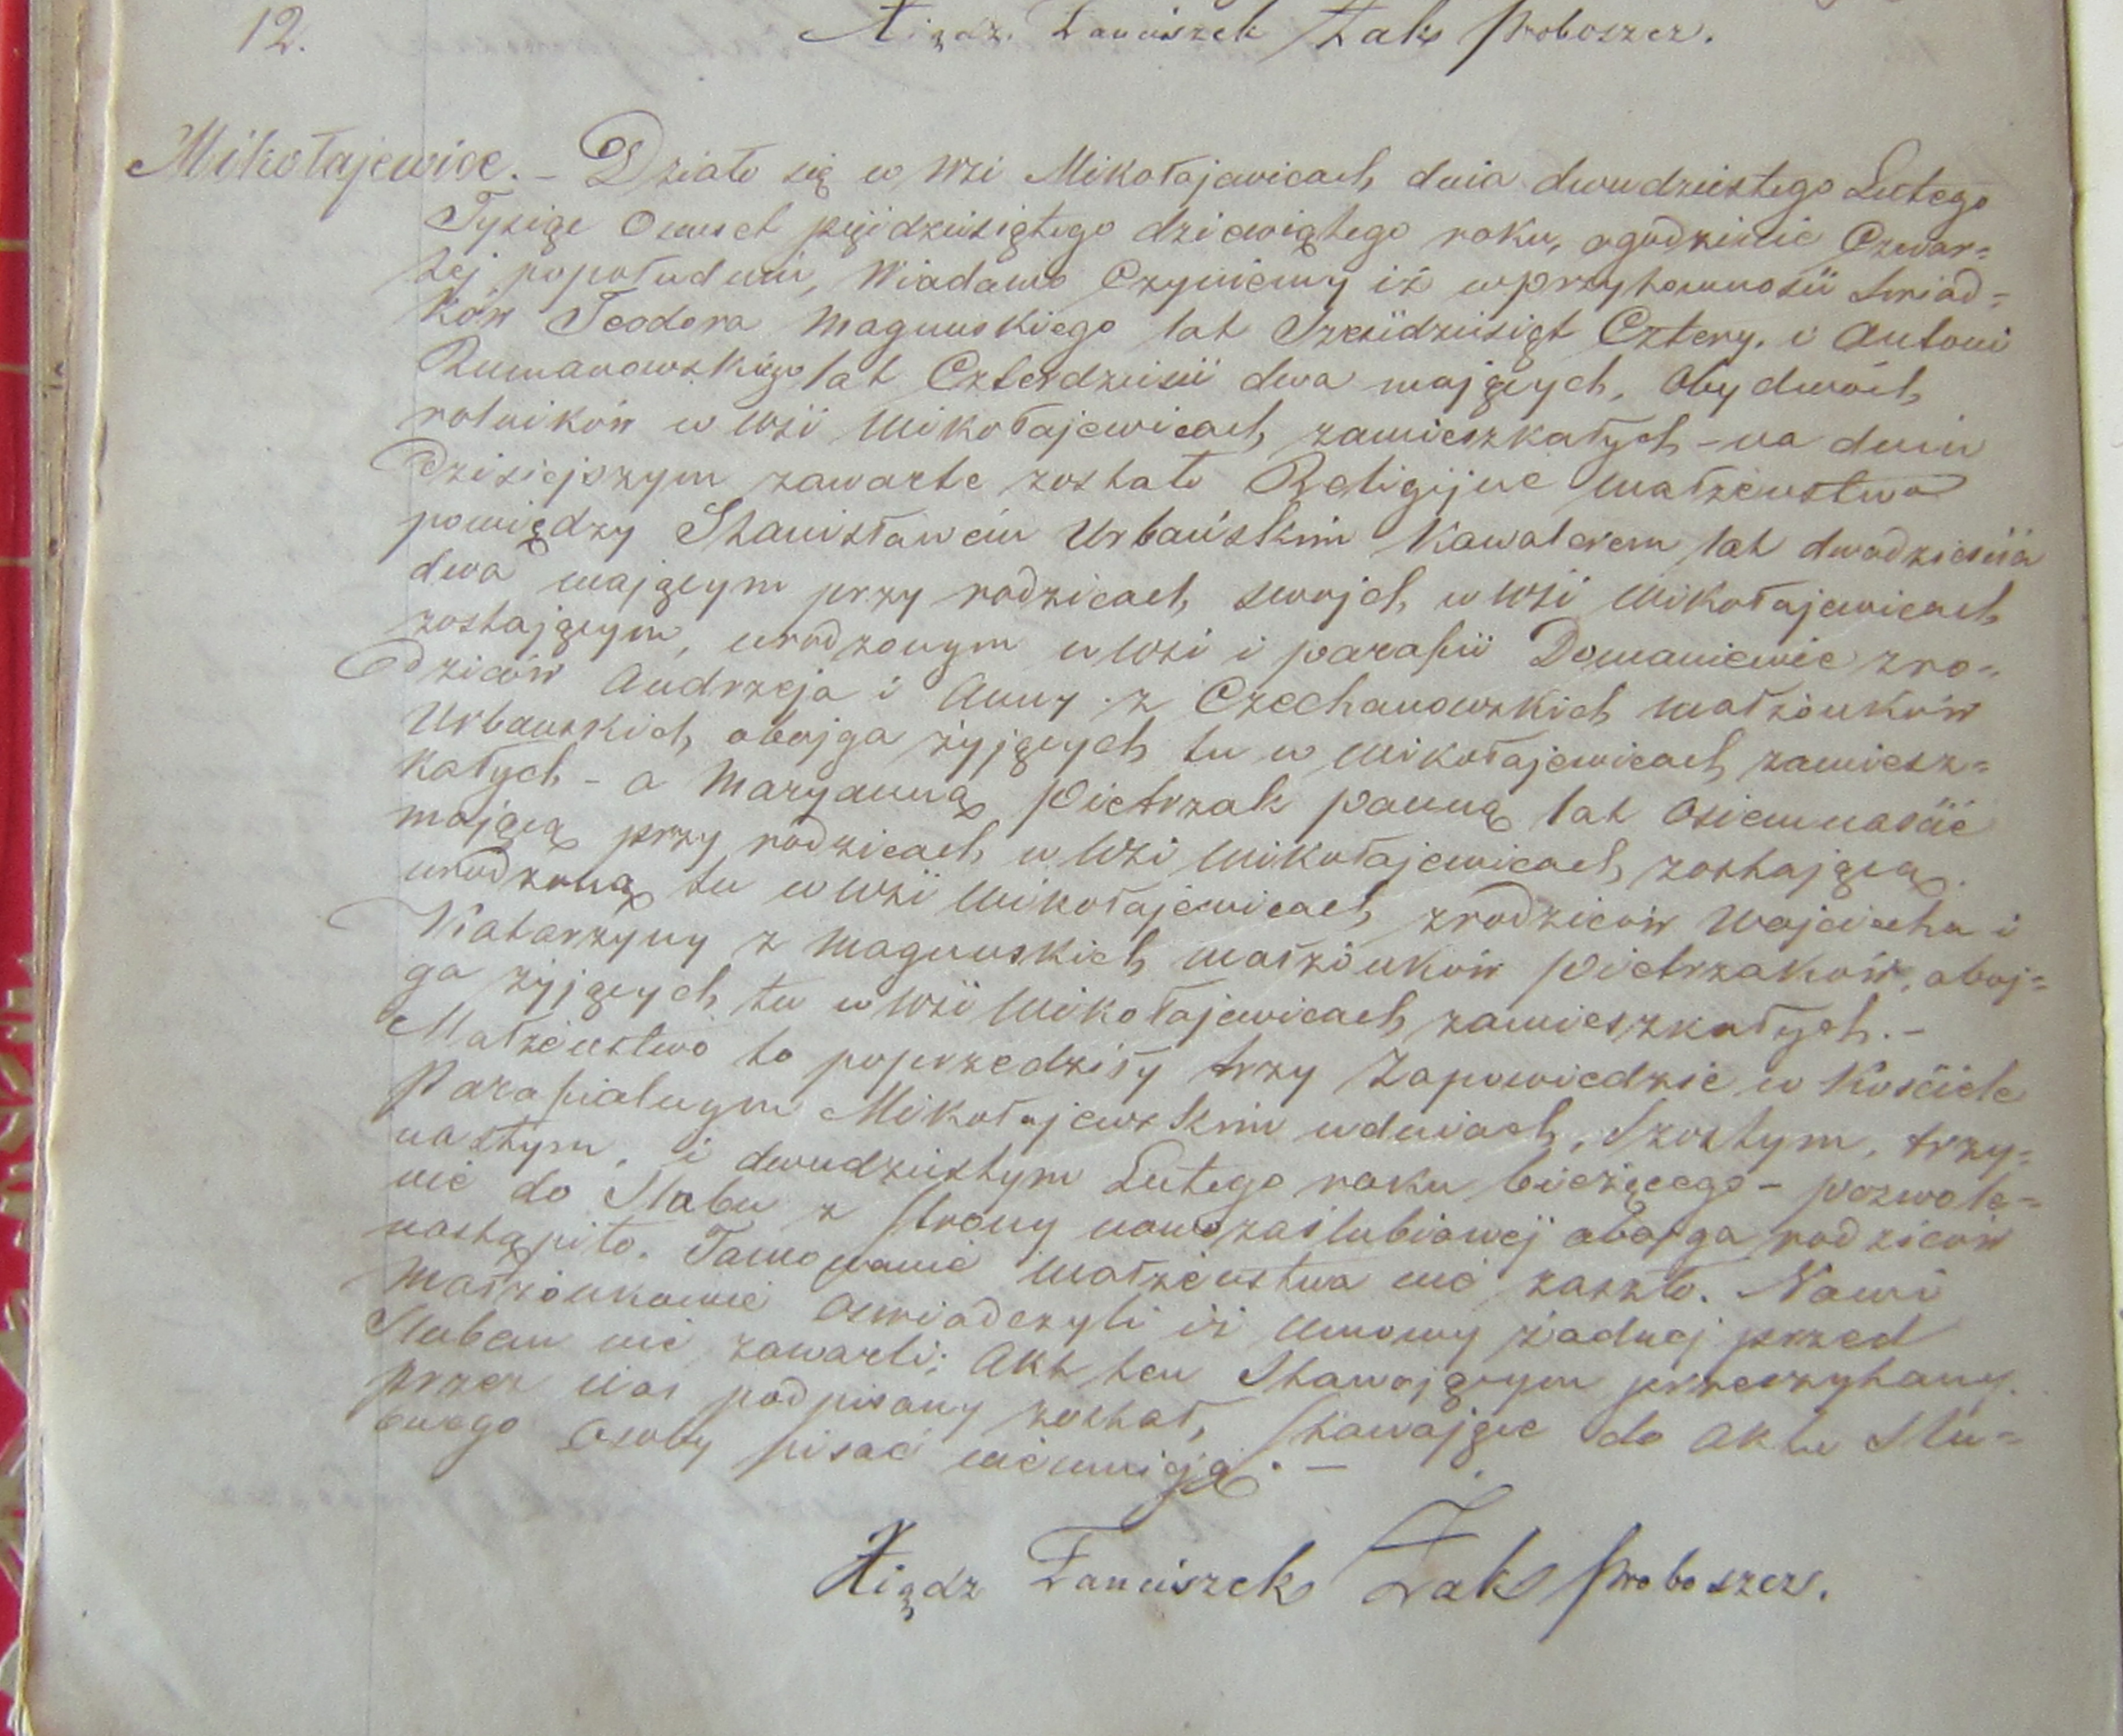 12.
Xiądz. Franciszek Żak Proboszcz.
Mikołajewice. – Działo się w Wsi Mikołajewicach dnia dwudziestego Lutego
Tysiąc Osmset pięidziesiątego dziewiątego roku, ogodzinie Czwar=
tej popołudniu, Wiadomo Czyniemy iż wprzytomnosii Swiad=
ków Teodora Magnuskiego lat Szesidziesiąt Cztery. i Antoni
Rumanowskiego lat Czterdziesii dwa mających, Obydwóch
rolników w Wsi Mikołajewicach zamieszkałych – na dniu
Dzisiejszym zawarte zostało Religijne małżenstwo
pomiędzy Stanisławem Urbańskim Kawalerem lat dwadzieścia
dwa mającym przy rodzicach swojch w Wsi Mikołajewicach
zostającym, urodzonym w Wsi i parafii Domaniewie zro=
dziców Andrzeja i Anny z Czechanowskich małżonków
Urbanskich obojga żyjących tu w Mikołajewicach zamiesz=
kałych – a Maryanną Pietrzak panną lat Osiemnaście
mającą przy rodzicach w Wsi Mikołajewicach zostającą.
urodzoną tu w Wsi Mikołajewicach zrodziców Wojciecha i
Katarzyny z Magnuskich małżonków Pietrzaków, oboj=
ga żyjących tu w Wsi Mikołajewicach zamieszkałych. –
Małżenstwo to poprzedziły trzy Zapowiedzie w Kościele
Parafialnym Mikołajewskim wdniach, Szostym, trzy=
nastym, i dwudziestym Lutego roku bieżącego – pozwole=
nie do Slubu z strony nowozaślubionej obojga rodziców
nastąpiło. Tamowanie małżenstwa nie zaszło. Nowi
Małżonkowie Oswiadczyli iż Umowy żadnej przed
Slubem nie zawarli; Akt ten Stawającym przeczytany.
przez Nas podpisany został, Stawające do Aktu Slu=
bnego Osoby pisać nieumieją. –
Xiądz Franciszek Żak Proboszcz.